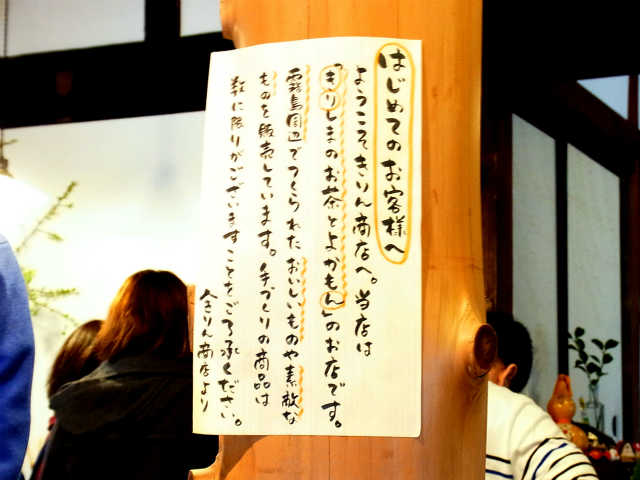 はじめてのお客様へ
ようこそきりん商店へ。当店は
「きりしまのお茶とよかもん」のお店です。
霧島周辺でつくられたおいしいものや素敵な
ものを販売しています。手づくりの商品は
数に限りがございますことをご了承ください。
きりん商店より